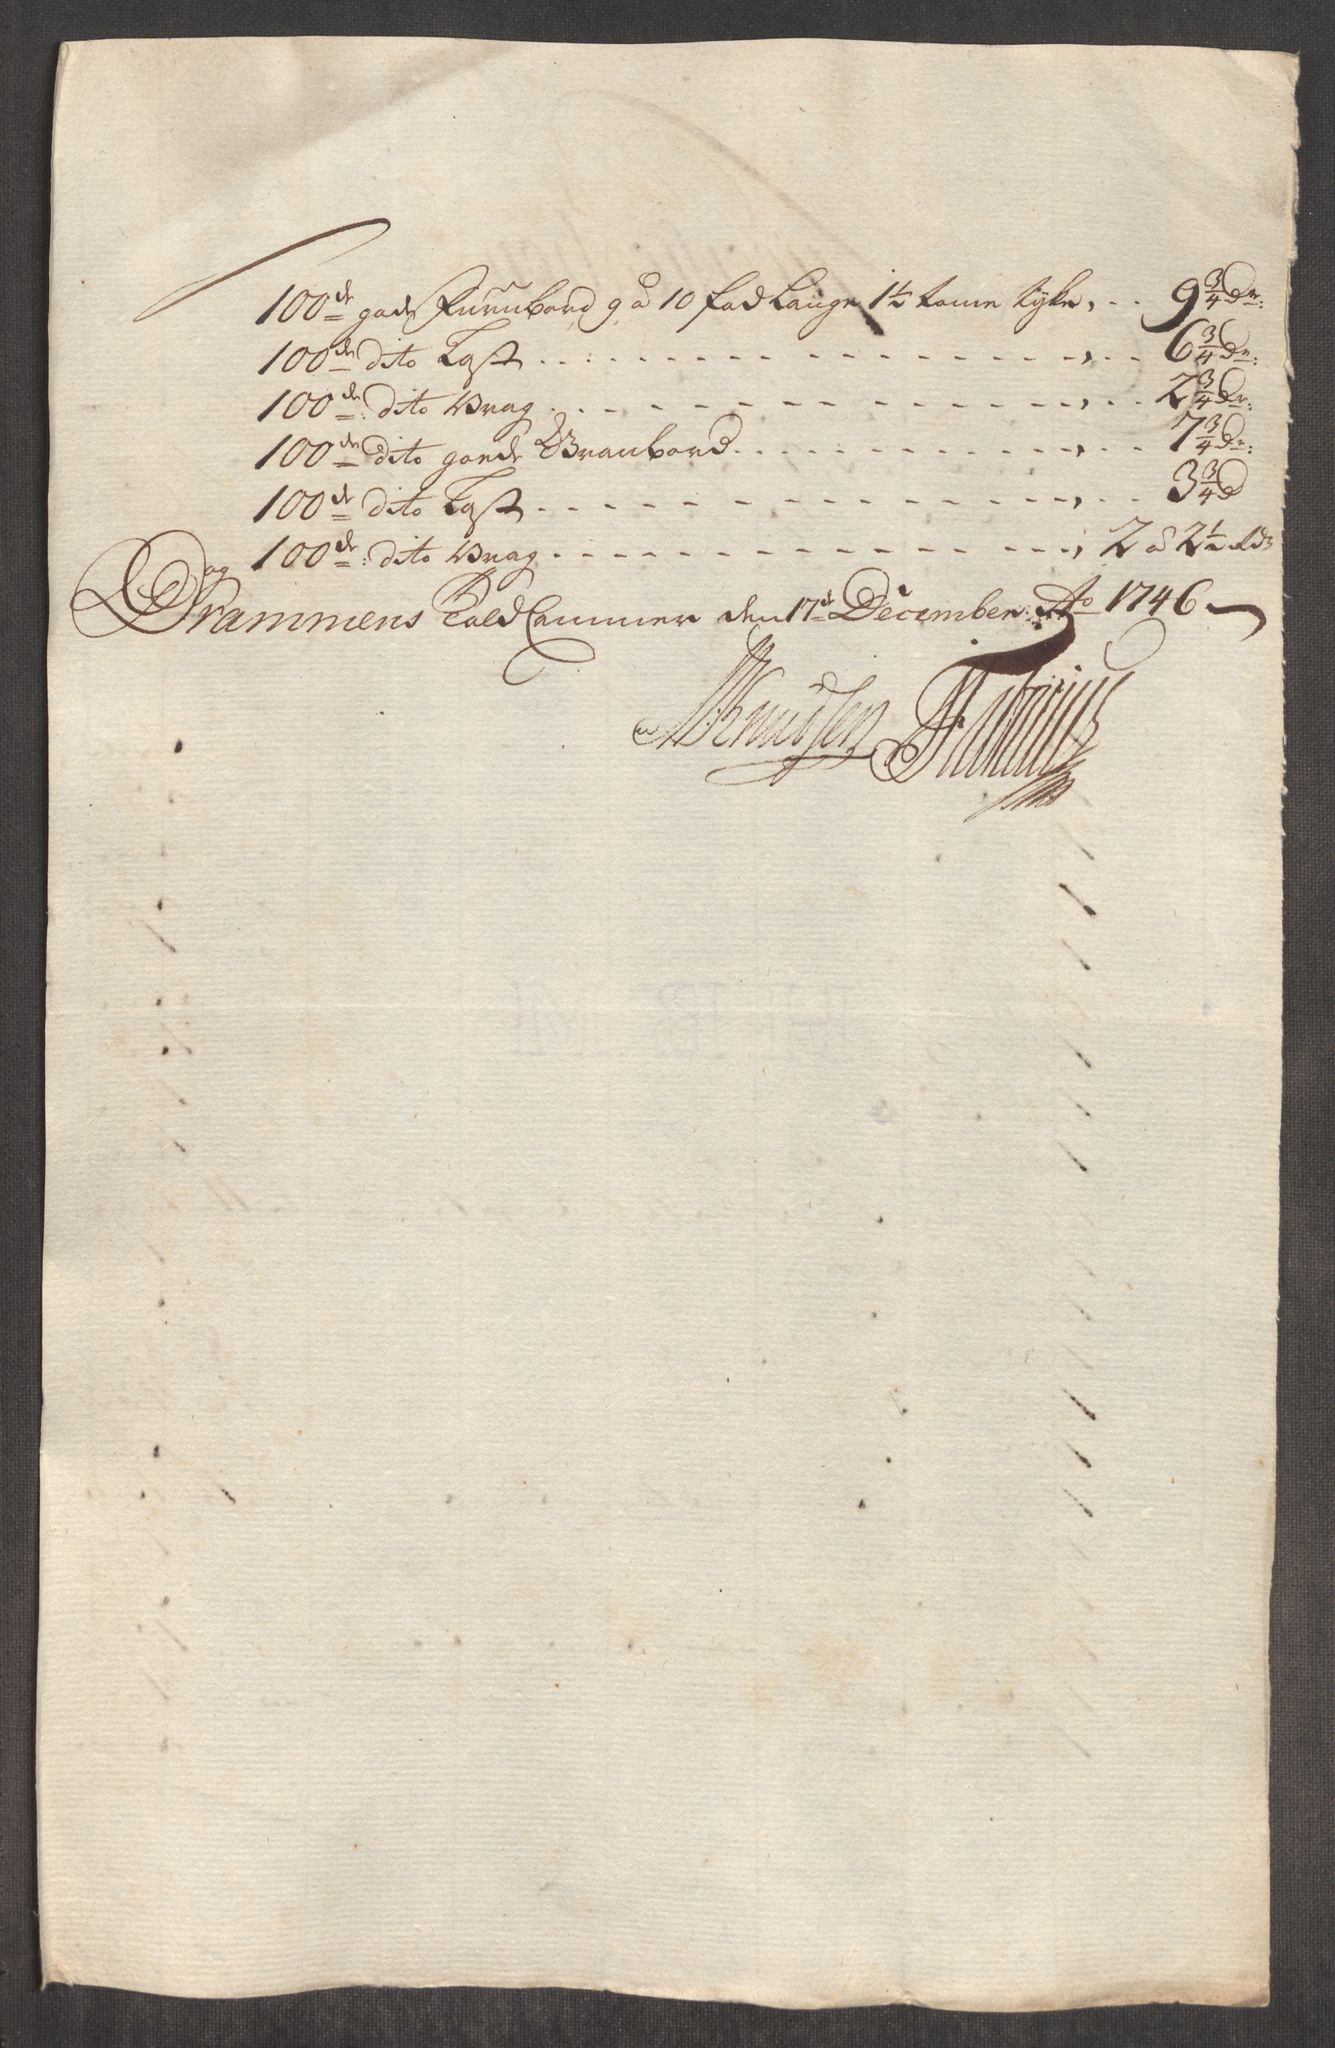 100de gode Furubord 9 à 10 fod Lange 1½ tomme tykke, . . 9¾ Dr:
100de dito Last . . . . . . . . . . . . . , . . 6¾ Dr:
100de: dito Vrag . . . . . . . . . . . . . , . . 2¾ Dr:
100de dito goede Granbord . . . . . . . . . . , . . 7¾ Dr:
100de dito Last . . . . . . . . . . . . . , . . 3¾ D
og 100de: dito Vrag . . . . . . . . . . . . . , 2 à 2½ Rdr
Drammens Told Cammer den 17de December: Ao 1746
Knudsen Fabricius